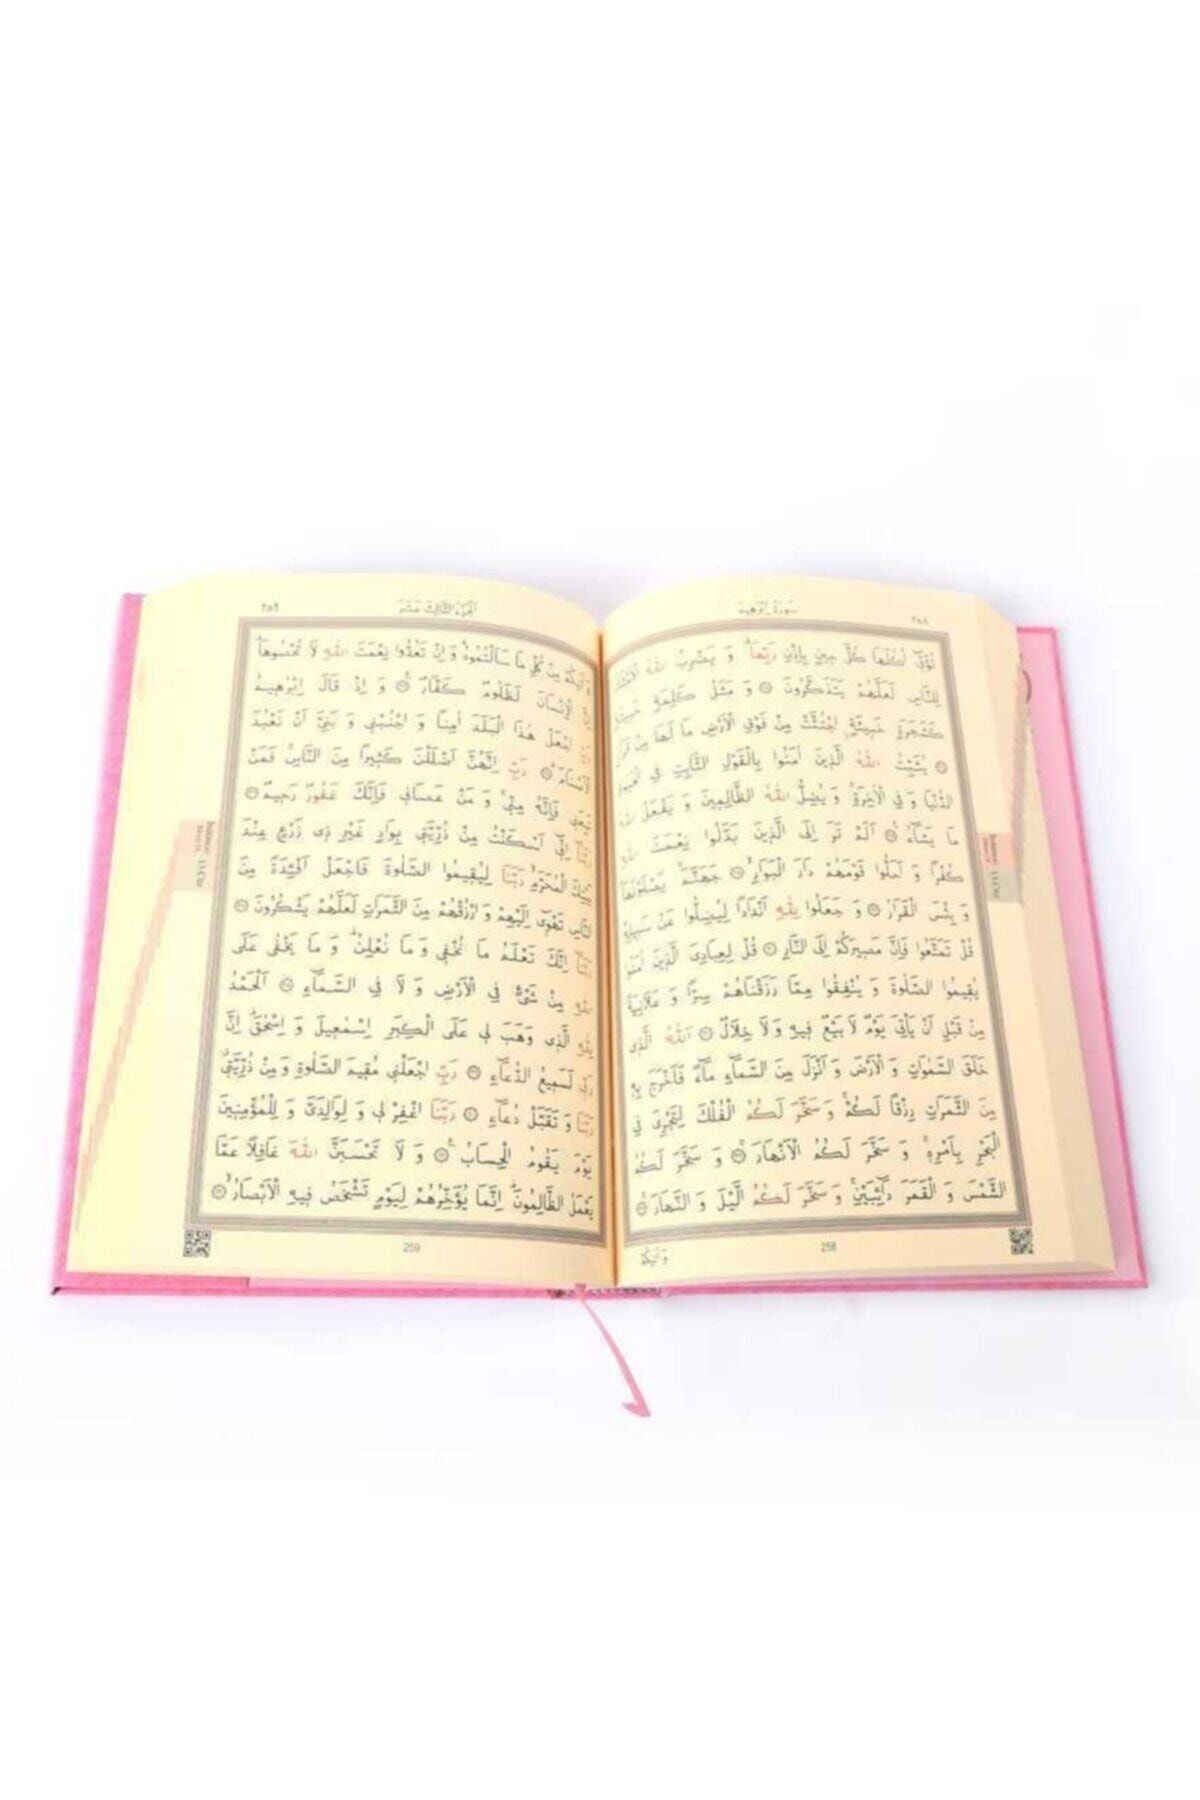 سُورَةُ اِبْرٰهِيمَ
٢٥٨
تُؤْتٖٓي اُكُلَهَا كُلَّ حٖينٍ بِاِذْنِ رَبِّهَاۜ وَ يَضْرِبُ اللّٰهُ الْاَمْثَالَ
لِلنَّاسِ لَعَلَّهُمْ يَتَذَكَّرُونَ ۝ وَ مَثَلُ كَلِمَةٍ خَبٖيثَةٍ
كَشَجَرَةٍ خَبٖيثَةٍۨ اجْتُثَّتْ مِنْ فَوْقِ الْاَرْضِ مَا لَهَا مِنْ قَرَارٍ
۝ يُثَبِّتُ اللّٰهُ الَّذٖينَ اٰمَنُوا بِالْقَوْلِ الثَّابِتِ فِي الْحَيٰوةِ
الدُّنْيَا وَ فِي الْاٰخِرَةِۚ وَ يُضِلُّ اللّٰهُ الظَّالِمٖينَ وَ يَفْعَلُ اللّٰهُ
مَا يَشَٓاءُ۟ ۝ اَلَمْ تَرَ اِلَى الَّذٖينَ بَدَّلُوا نِعْمَتَ اللّٰهِ
كُفْرًا وَ اَحَلُّوا قَوْمَهُمْ دَارَ الْبَوَارِۙ ۝ جَهَنَّمَۚ يَصْلَوْنَهَاۜ
وَ بِئْسَ الْقَرَارُ ۝ وَ جَعَلُوا لِلّٰهِ اَنْدَادًا لِيُضِلُّوا عَنْ سَبٖيلِهٖۜ
قُلْ تَمَتَّعُوا فَاِنَّ مَصٖيرَكُمْ اِلَى النَّارِ ۝ قُلْ لِعِبَادِيَ الَّذٖينَ اٰمَنُوا
يُقٖيمُوا الصَّلٰوةَ وَ يُنْفِقُوا مِمَّا رَزَقْنَاهُمْ سِرًّا وَ عَلَانِيَةً
مِنْ قَبْلِ اَنْ يَاْتِيَ يَوْمٌ لَا بَيْعٌ فٖيهِ وَ لَا خِلَالٌ ۝ اَللّٰهُ الَّذٖي
خَلَقَ السَّمٰوَاتِ وَ الْاَرْضَ وَ اَنْزَلَ مِنَ السَّمَٓاءِ مَٓاءً فَاَخْرَجَ بِهٖ
مِنَ الثَّمَرَاتِ رِزْقًا لَكُمْۚ وَ سَخَّرَ لَكُمُ الْفُلْكَ لِتَجْرِيَ فِي
الْبَحْرِ بِاَمْرِهٖۚ وَ سَخَّرَ لَكُمُ الْاَنْهَارَۚ ۝ وَ سَخَّرَ لَكُمُ
الشَّمْسَ وَ الْقَمَرَ دَٓائِبَيْنِۚ وَ سَخَّرَ لَكُمُ الَّيْلَ وَ النَّهَارَۚ ۝
وَ اٰتٰيكُمْ
258
٢٥٩
اَلْجُزْءُ الثَّالِثَ عَشَرَ
وَ اٰتٰيكُمْ مِنْ كُلِّ مَا سَاَلْتُمُوهُۜ وَ اِنْ تَعُدُّوا نِعْمَتَ اللّٰهِ لَا تُحْصُوهَاۜ
الْاِنْسَانَ لَظَلُومٌ كَفَّارٌ۟ ۝ وَ اِذْ قَالَ اِبْرٰهٖيمُ
اجْعَلْ هٰذَا الْبَلَدَ اٰمِنًا وَ اجْنُبْنٖي وَ بَنِيَّ اَنْ نَعْبُدَ
الْاَصْنَامَۜ ۝ رَبِّ اِنَّهُنَّ اَضْلَلْنَ كَثٖيرًا مِنَ النَّاسِۚ فَمَنْ
تَبِعَنٖي فَاِنَّهُ مِنّٖيۚ وَ مَنْ عَصَانٖي فَاِنَّكَ غَفُورٌ رَحٖيمٌ ۝
رَبَّنَٓا اِنّٖٓي اَسْكَنْتُ مِنْ ذُرِّيَّتٖي بِوَادٍ غَيْرِ ذٖي زَرْعٍ عِنْدَ
بَيْتِكَ الْمُحَرَّمِۙ رَبَّنَا لِيُقٖيمُوا الصَّلٰوةَ فَاجْعَلْ اَفْـِٔدَةً مِنَ
النَّاسِ تَهْوٖٓي اِلَيْهِمْ وَ ارْزُقْهُمْ مِنَ الثَّمَرَاتِ لَعَلَّهُمْ يَشْكُرُونَ ۝
رَبَّنَٓا اِنَّكَ تَعْلَمُ مَا نُخْفٖي وَ مَا نُعْلِنُۜ وَ مَا يَخْفٰى عَلَى
اللّٰهِ مِنْ شَيْءٍ فِي الْاَرْضِ وَ لَا فِي السَّمَٓاءِ ۝ اَلْحَمْدُ
لِلّٰهِ الَّذٖي وَهَبَ لٖي عَلَى الْكِبَرِ اِسْمٰعٖيلَ وَ اِسْحٰقَۜ اِنَّ
رَبّٖي لَسَمٖيعُ الدُّعَٓاءِ ۝ رَبِّ اجْعَلْنٖي مُقٖيمَ الصَّلٰوةِ وَ مِنْ ذُرِّيَّتٖيۗ
رَبَّنَا وَ تَقَبَّلْ دُعَٓاءِ ۝ رَبَّنَا اغْفِرْ لٖي وَ لِوَالِدَيَّ وَ لِلْمُؤْمِنٖينَ
يَوْمَ يَقُومُ الْحِسَابُ۟ ۝ وَ لَا تَحْسَبَنَّ اللّٰهَ غَافِلًا عَمَّا
يَعْمَلُ الظَّالِمُونَۜ اِنَّمَا يُؤَخِّرُهُمْ لِيَوْمٍ تَشْخَصُ فٖيهِ الْاَبْصَارُۙ ۝
259